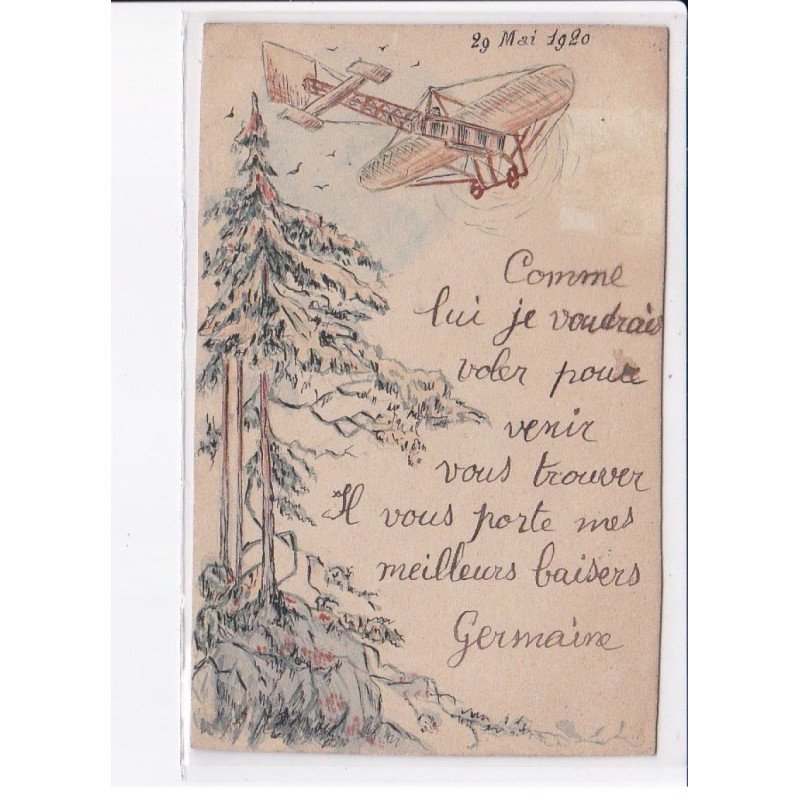 29 Mai 1920
Comme
lui je voudrais
voler pour
venir
vous trouver
Il vous porte mes
meilleurs baisers
Germaine